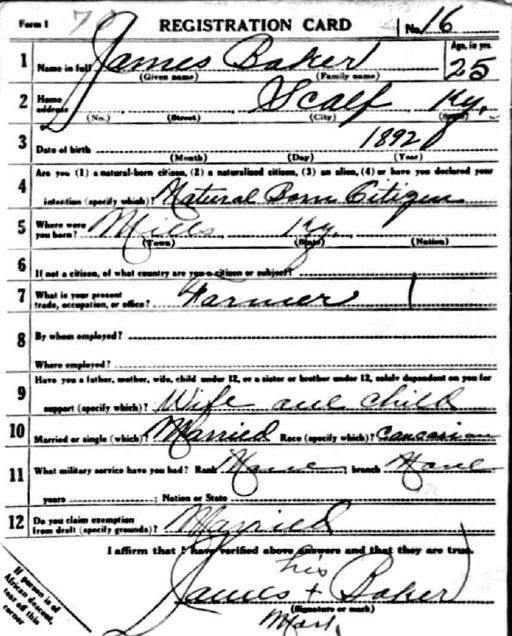 Form 1 REGISTRATION CARD No. 16
1 Name in full James Baker Age, in yrs. 25
(Given name) (Family name)
2 Home address Scalf Ky.
(No.) (Street) (City) (State)
3 Date of birth 1892
(Month) (Day) (Year)
Are you (1) a natural-born citizen, (2) a naturalized citizen, (3) an alien, (4) or have you declared your
4 intention (specify which)? Natural Born Citizen
5 Where were you born? Mills Ky.
(Town) (State) (Nation)
6 If not a citizen, of what country are you a citizen or subject?
7 What is your present trade, occupation, or office? Farmer
8 By whom employed?
Where employed?
Have you a father, mother, wife, child under 12, or a sister or brother under 12, solely dependent on you for
9 support (specify which)? Wife and child
10 Married or single (which)? Married Race (specify which)? Caucasian
11 What military service have you had? Rank None ; branch None
years ; Nation or State
12 Do you claim exemption from draft (specify grounds)? Married
I affirm that I have verified above answers and that they are true.
his
James + Baker
(Signature or mark)
Mark
If person is of
African descent,
tear off this
corner